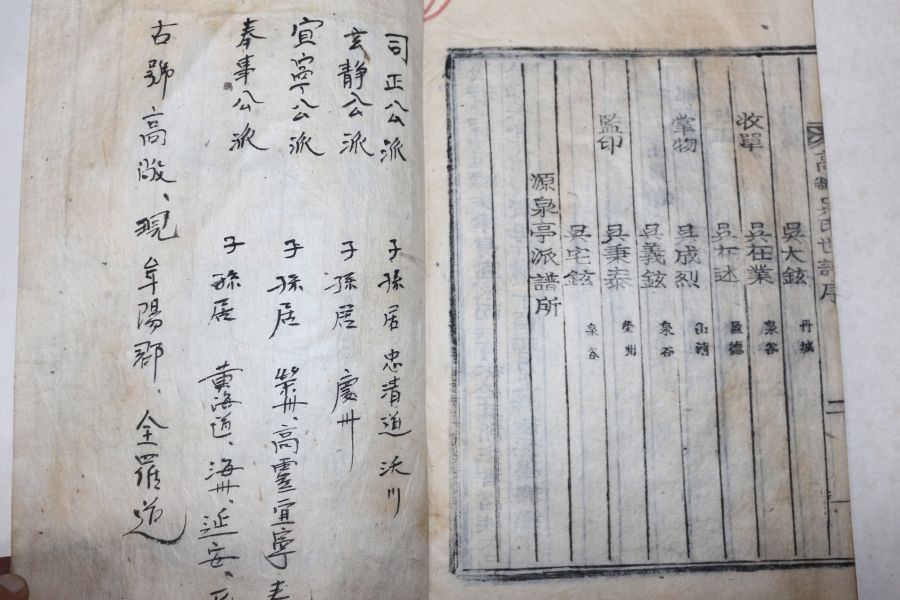 高敞吳氏世譜序
吳大鉉 丹城
收單 吳在業 泉谷
吳在述 盈德
掌物 吳成烈 山淸
吳義鉉 泉谷
吳秉泰 榮州
監印 吳宅鉉 泉谷
源泉亭派譜所
司正公派 子孫居 忠清道 沃川
玄靜公派 子孫居 慶州
宜寧公派 子孫居 榮州、高靈宜寧
奉事公派 子孫居 黃海道、海州、延安、
古號高敞、現 牟陽郡、全羅道